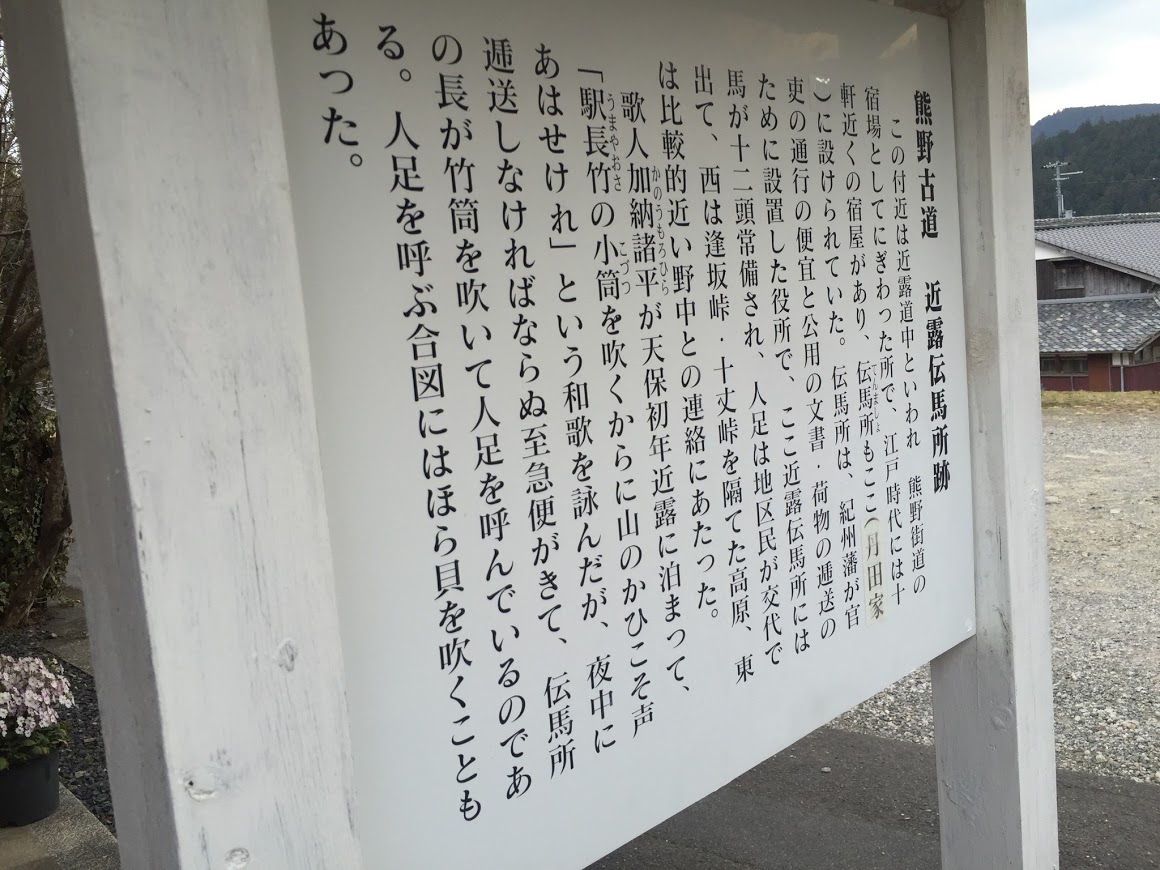 熊野古道 近露伝馬所跡
この付近は近露道中といわれ 熊野街道の
宿場としてにぎわった所で、江戸時代には十
軒近くの宿屋があり、伝馬所もここ(丹田家
)に設けられていた。伝馬所は、紀州藩が官
吏の通行の便宜と公用の文書・荷物の逓送の
ために設置した役所で、ここ近露伝馬所には
馬が十二頭常備され、人足は地区民が交代で
出て、西は逢坂峠・十丈峠を隔てた高原、東
は比較的近い野中との連絡にあたった。
歌人加納諸平が天保初年近露に泊まって、
「駅長竹の小筒を吹くからに山のかひこそ声
あはせけれ」という和歌を詠んだが、夜中に
逓送しなければならぬ至急便がきて、伝馬所
の長が竹筒を吹いて人足を呼んでいるのであ
る。人足を呼ぶ合図にはほら貝を吹くことも
あった。
てんましょ
かのうもろひら
うまやおさ
こづつ